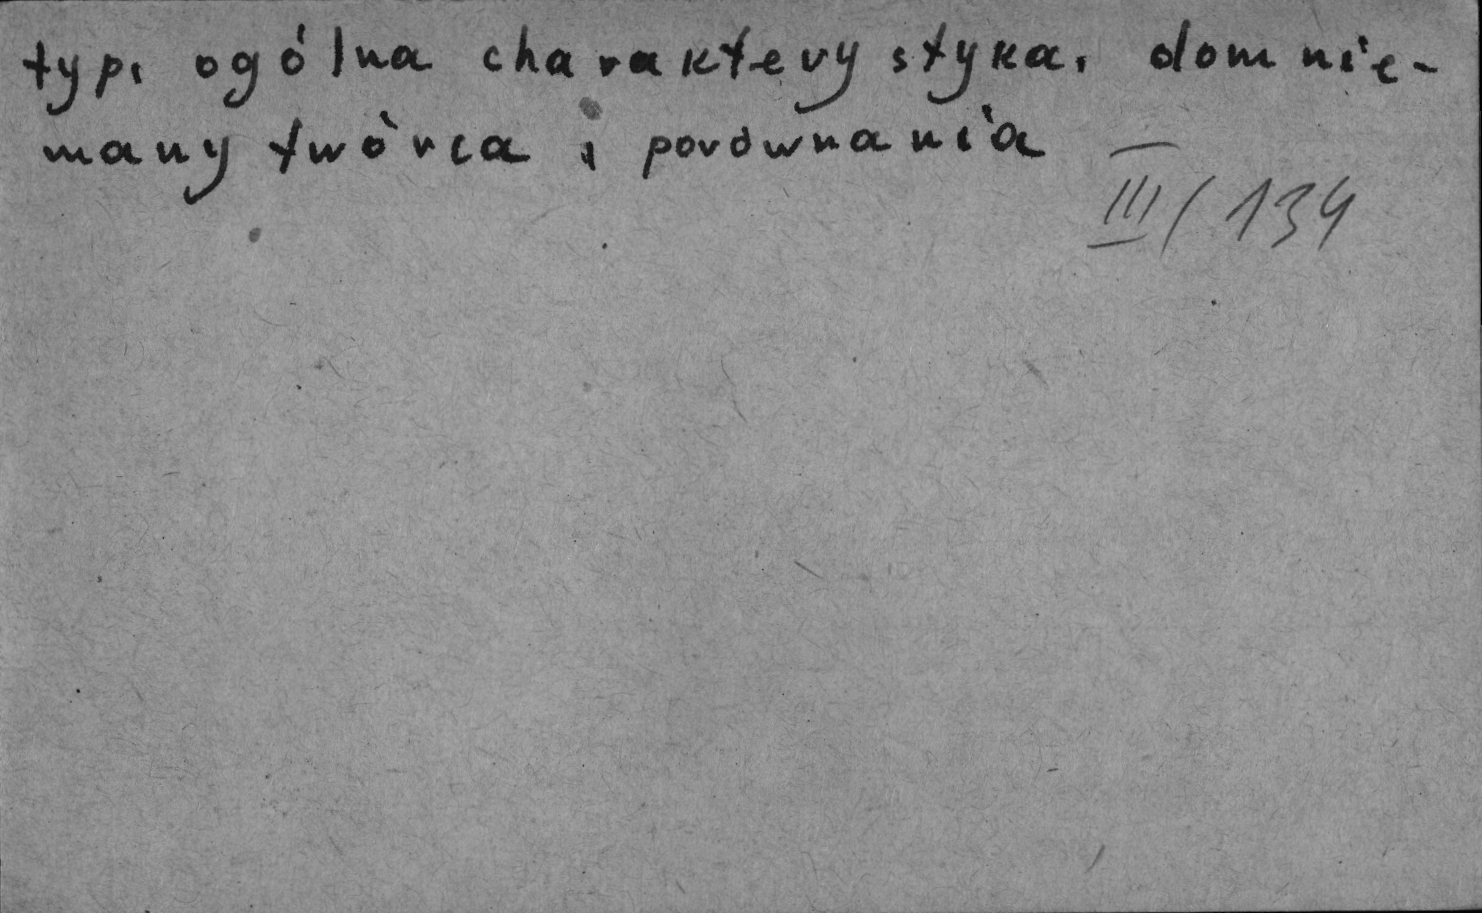 typ, ogólna charakterystyka, domnie-
many twórca i porównania
III/134